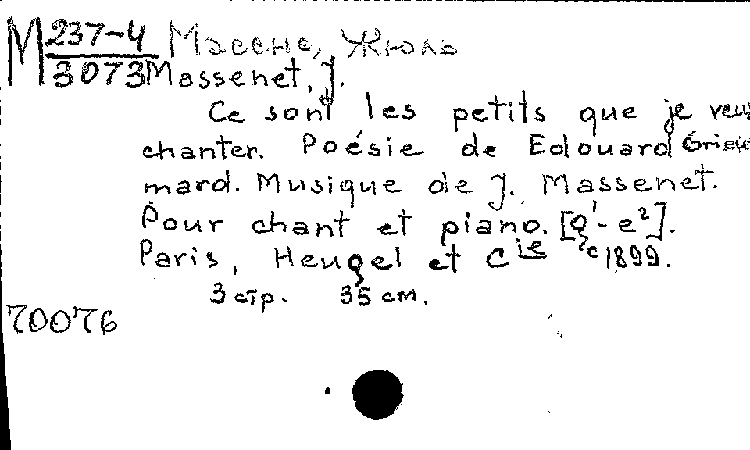 М 237-4 Массне, Жюль
3073 Massenet, J.
Ce sont les petits que je veux
chanter. Poésie de Edouard
mard. Musique de J. Massenet.
Pour chant et piano. [g¹- e²].
Paris, Heugel et Cie, c 1899.
3 стр. 35 cm.
70076